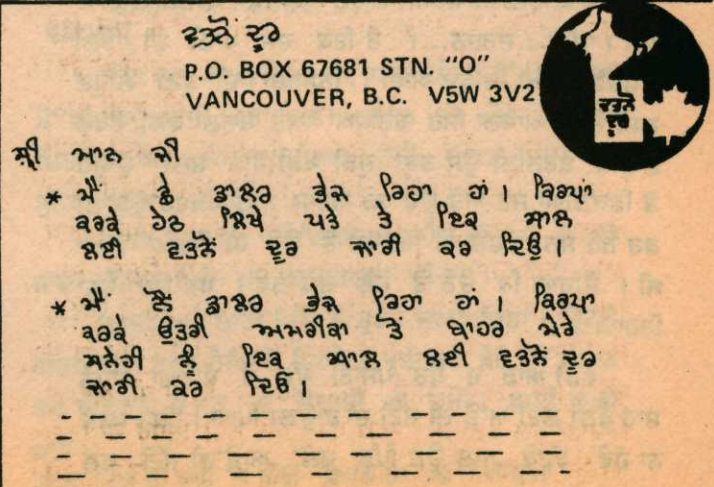 ਵਤਨੋਂ ਦੂਰ
P.O. BOX 67681 STN. "O"
VANCOUVER, B.C. V5W 3V2
ਵਤਨੋਂ
ਦੂਰ
ਸ਼੍ਰੀ ਮਾਨ ਜੀ
* ਮੈਂ ਛੇ ਡਾਲਰ ਭੇਜ ਰਿਹਾ ਹਾਂ। ਕਿਰਪਾ
ਕਰਕੇ ਹੇਠ ਲਿਖੇ ਪਤੇ ਤੇ ਇਕ ਸਾਲ
ਲਈ ਵਤਨੋਂ ਦੂਰ ਜਾਰੀ ਕਰ ਦਿਓ।
* ਮੈਂ ਨੌਂ ਡਾਲਰ ਭੇਜ ਰਿਹਾ ਹਾਂ। ਕਿਰਪਾ
ਕਰਕੇ ਉਤਰੀ ਅਮਰੀਕਾ ਤੋਂ ਬਾਹਰ ਮੇਰੇ
ਸਨੇਹੀ ਨੂੰ ਇਕ ਸਾਲ ਲਈ ਵਤਨੋਂ ਦੂਰ
ਜਾਰੀ ਕਰ ਦਿਓ।